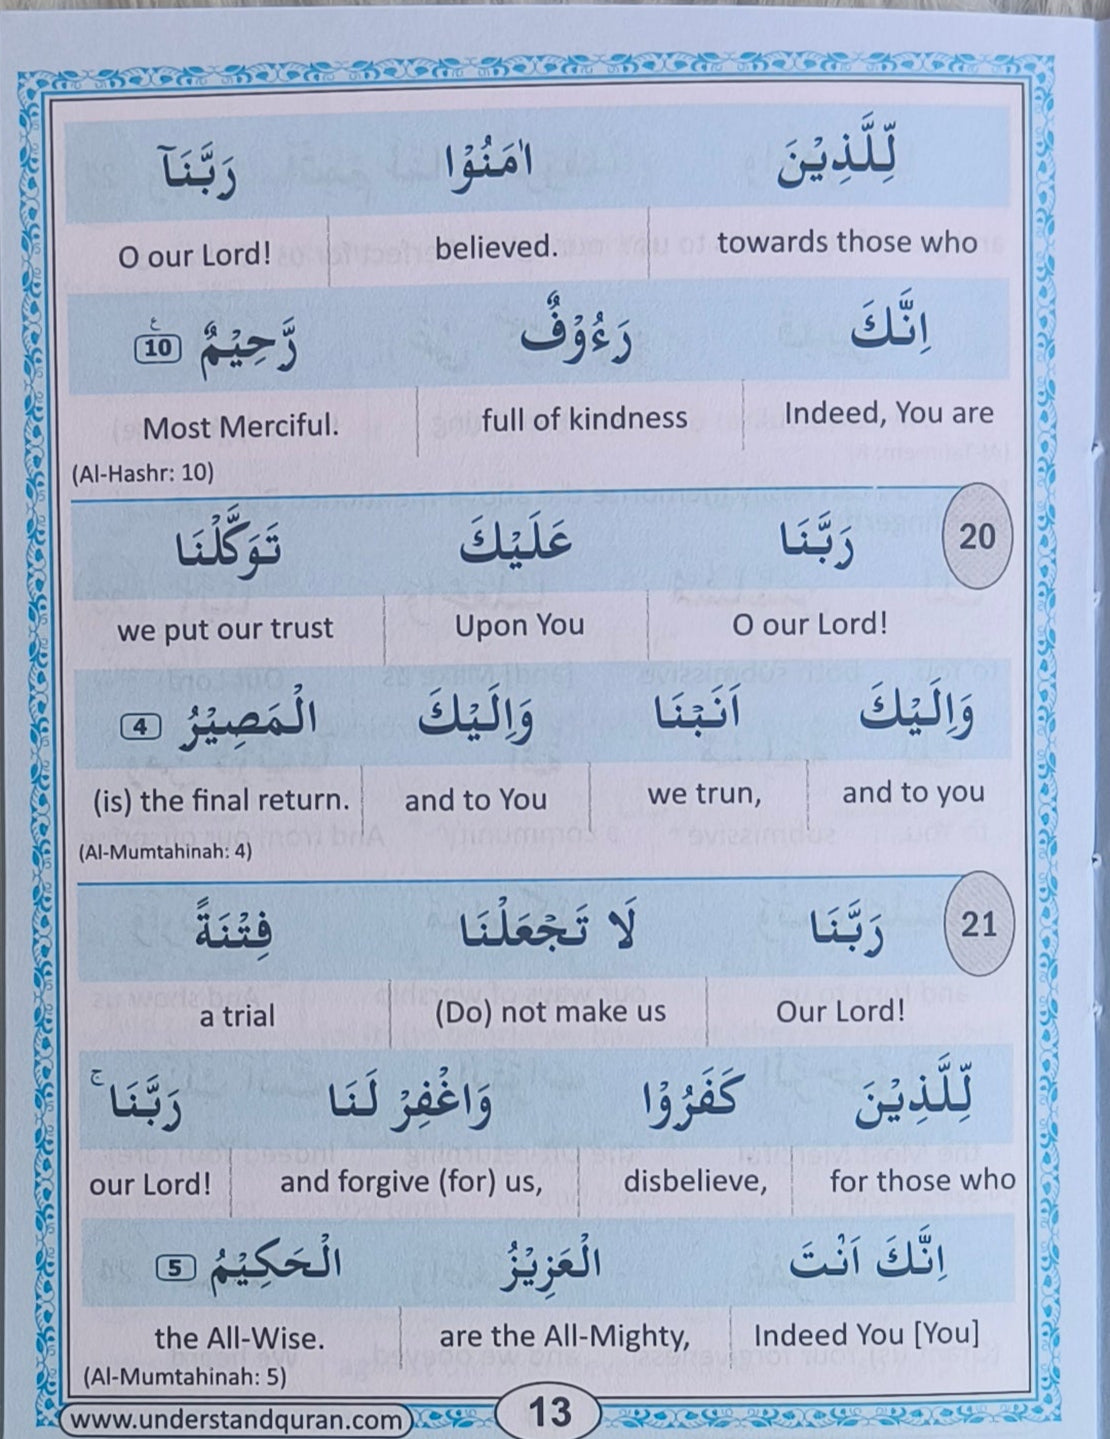 لِّلَّذِيْنَ اٰمَنُوْا رَبَّنَآ
towards those who believed. O our Lord!
اِنَّكَ رَءُوْفٌ رَّحِيْمٌ ع 10
Indeed, You are full of kindness Most Merciful.
(Al-Hashr: 10)
20 رَبَّنَا عَلَيْكَ تَوَكَّلْنَا
O our Lord! Upon You we put our trust
وَاِلَيْكَ اَنَبْنَا وَاِلَيْكَ الْمَصِيْرُ 4
and to you we trun, and to You (is) the final return.
(Al-Mumtahinah: 4)
21 رَبَّنَا لَا تَجْعَلْنَا فِتْنَةً
Our Lord! (Do) not make us a trial
لِّلَّذِيْنَ كَفَرُوْا وَاغْفِرْ لَنَا رَبَّنَا ۚ
for those who disbelieve, and forgive (for) us, our Lord!
اِنَّكَ اَنْتَ الْعَزِيْزُ الْحَكِيْمُ 5
Indeed You [You] are the All-Mighty, the All-Wise.
(Al-Mumtahinah: 5)
www.understandquran.com 13